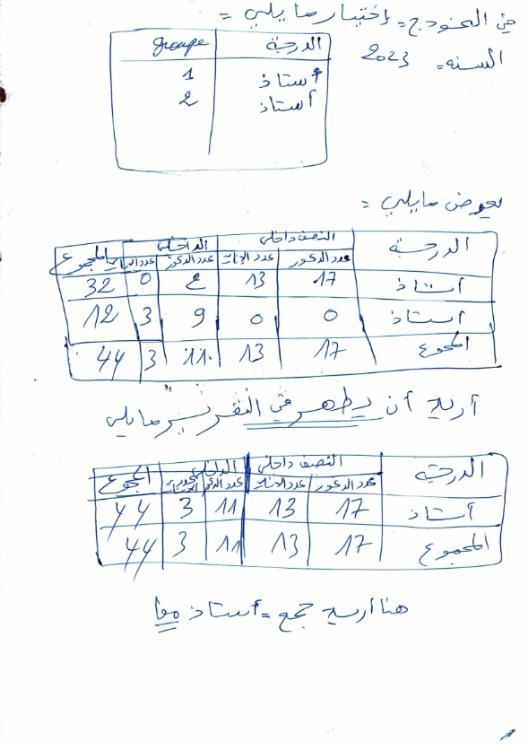 في النموذج = إختيار ما يلي =
السنه = 2023
الدرجة groupe
أستاذ 1
أستاذ 2
يعرض مايلي =
الدرجة النصف داخلي الداخلي المجموع
عدد الذكور عدد الإناث عدد الذكور عدد الإناث
أستاذ 17 13 2 0 32
أستاذ 0 0 9 3 12
المجموع 17 13 11 3 44
أريد أن يظهر في التقرير مايلي
الدرجة النصف داخلي الداخلي المجموع
عدد الذكور عدد الإناث عدد الذكور عدد الإناث
أستاذ 17 13 11 3 44
المجموع 17 13 11 3 44
هنا أريد جمع = أستاذ معا